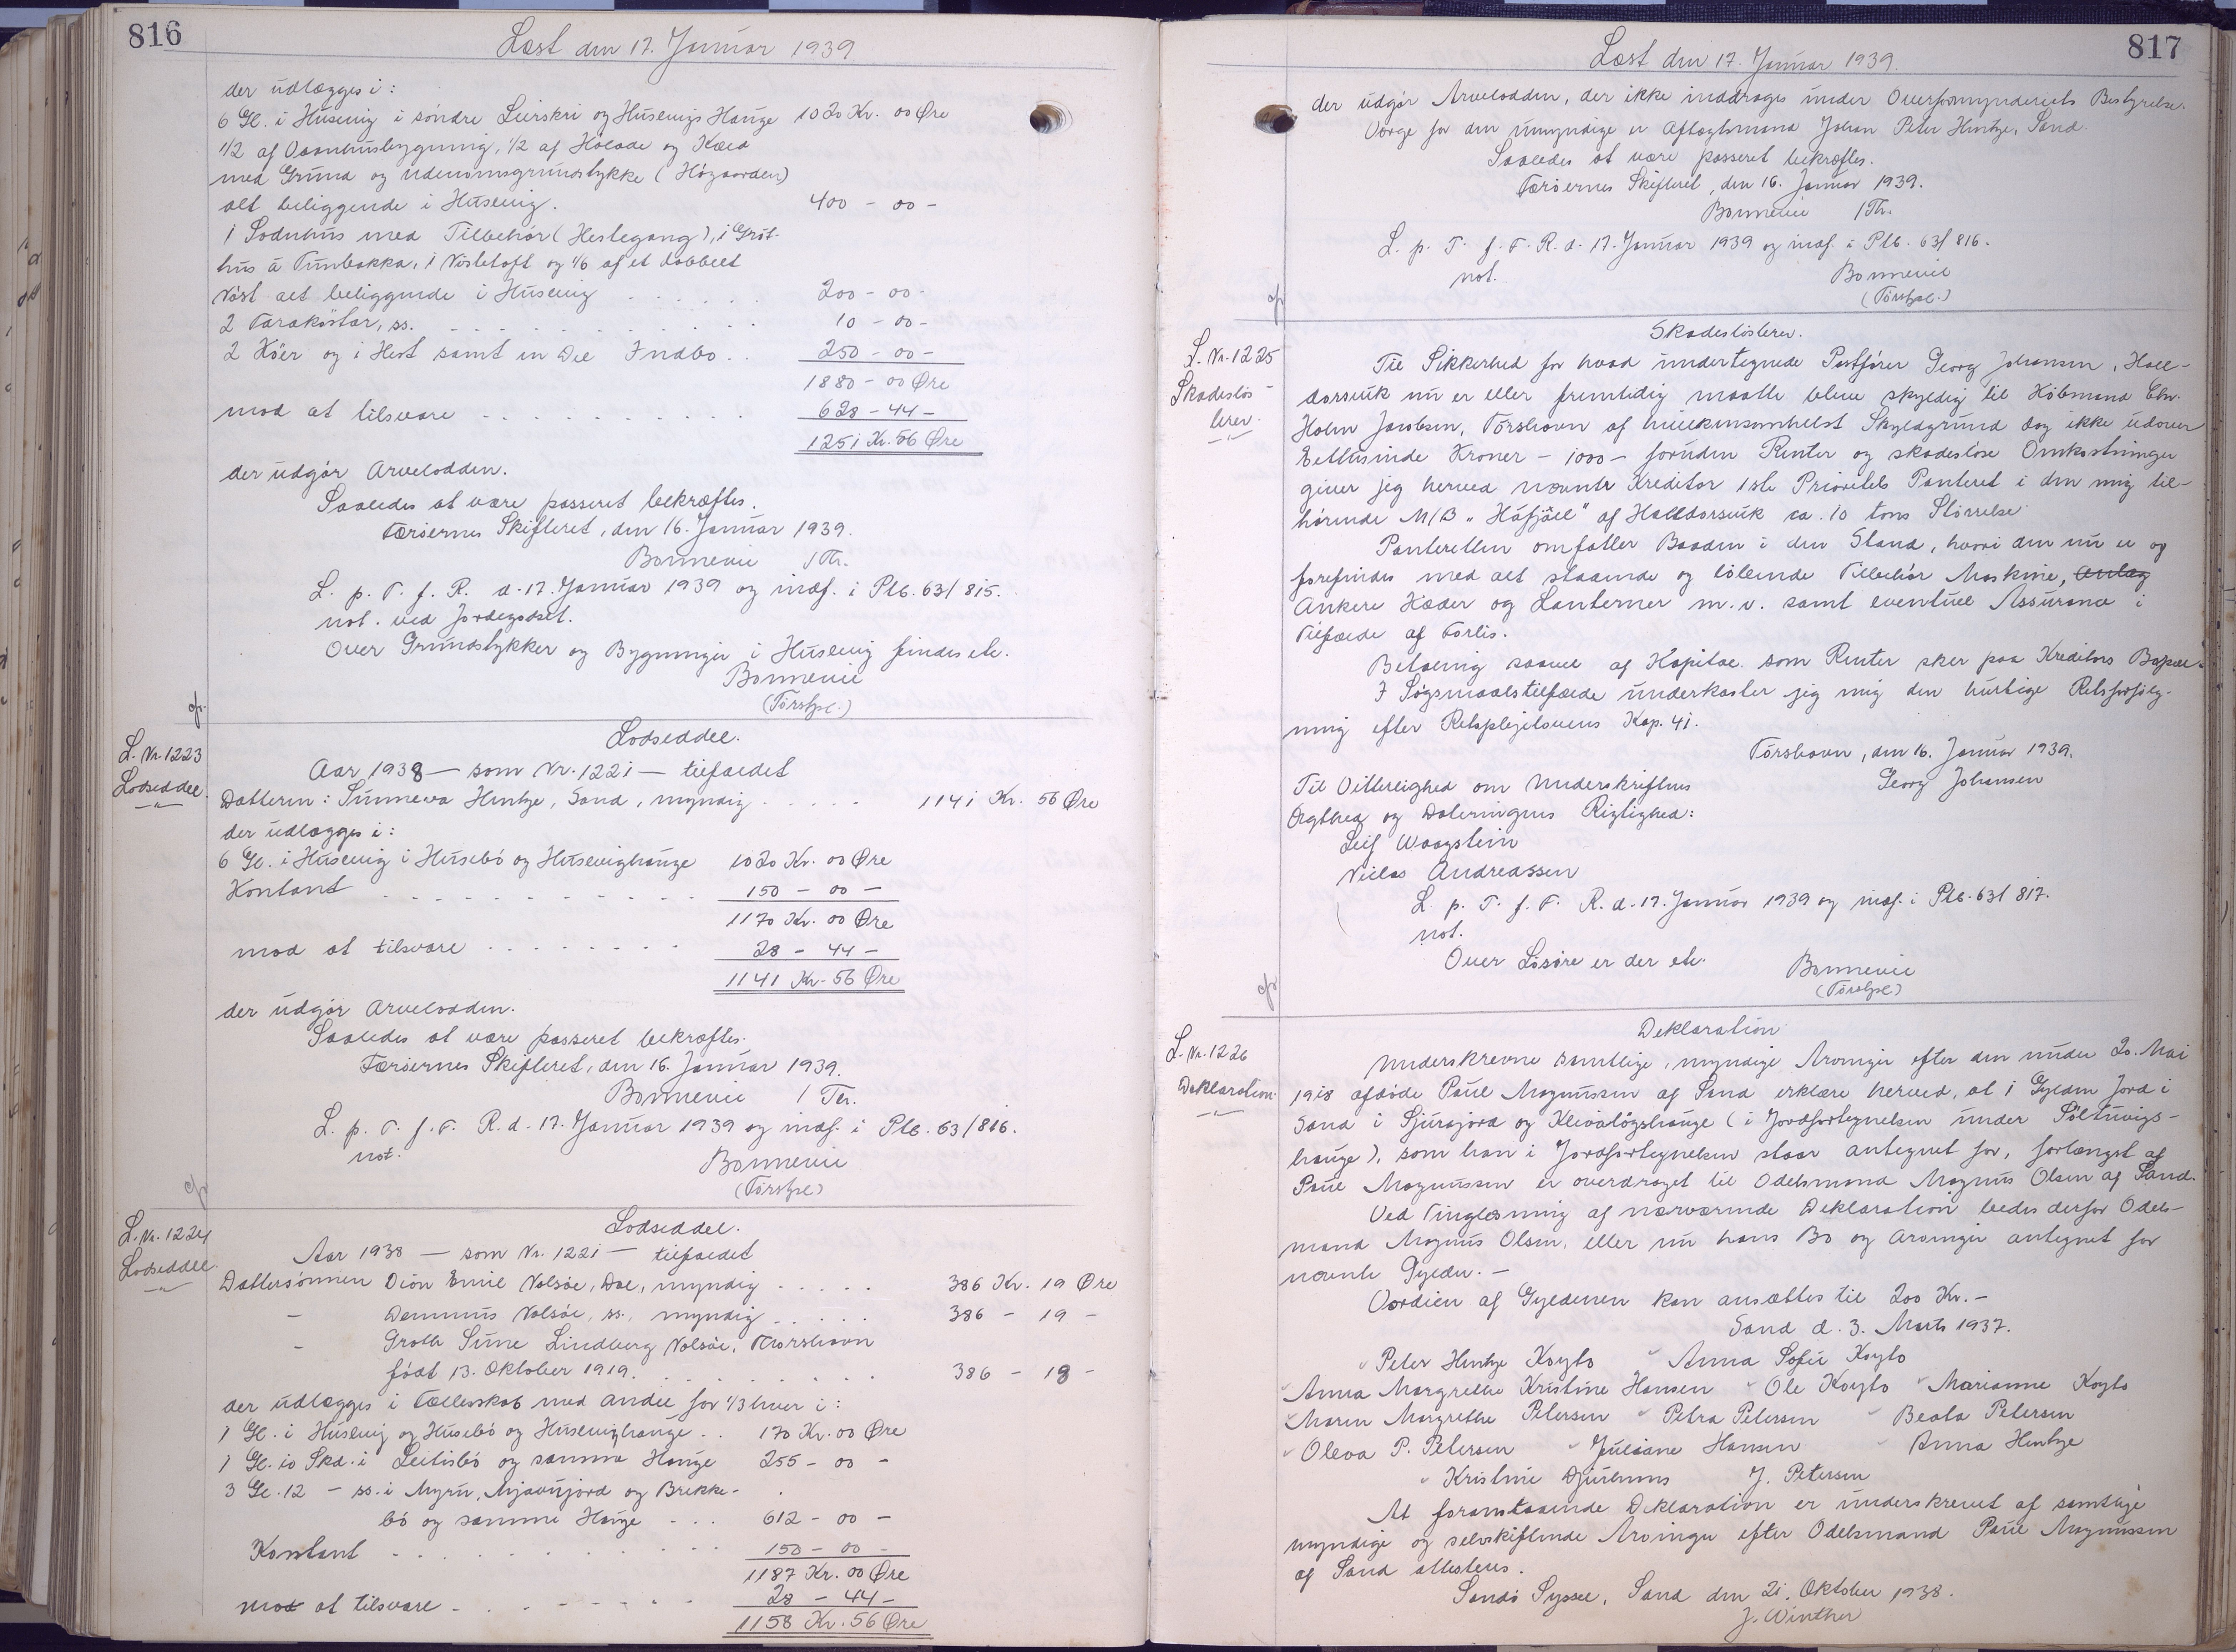 816
Læst den 17. Januar 1939
der udlægges i:
6 Gl. i Husevig i søndre Leirskri og Husevigs Hauge 1020 Kr. 00 Øre
1/2 af Vaanhusbygning, 1/2 af Hølade og Kæld
med Grund og udenomsgrundstykke (Høgaarden)
alt beliggende i Husevig. 400 - 00 -
1 Sodnhus med Tilbehør (Hestegang), 1 Grót-
hus á Tunbakka, 1 Nöstetoft og 1/6 af et dobbelt
Nöst alt beliggende i Husevig . . . . . . 200 - 00 -
2 Tarakóstar, ss. . . . . . . . . . 10 - 00 -
2 Köer og 1 Hest samt en Del Indbo . . 250 - 00 -
1880 - 00 Øre
mod at tilsvare . . . . . . . . . . 628 - 44 -
1251 Kr. 56 Øre
der udgør Arvelodden.
Saaledes at være passeret bekræftes.
Færøernes Skifteret, den 16. Januar 1939.
Bonnevie / Th.
L. p. T. f. R. d. 17. Januar 1939 og indf. i Ptb. 63/815.
not. ved Jordegodset.
Over Grundstykker og Bygninger i Husevig findes etc.
Bonnevie
(Tórshpl.)
L. Nr. 1223
Lodseddel.
Lodseddel.
Aar 1938 — som Nr. 1221 — tilfaldet
Datteren: Sunneva Hentze, Sand, myndig . . . . . 1141 Kr. 56 Øre
der udlægges i:
6 Gl. i Husevig i Husebö og Husevighauge 1020 Kr. 00 Øre
Kontant . . . . . . . . . . . 150 - 00 -
1170 Kr. 00 Øre
mod at tilsvare . . . . . . . . 28 - 44 -
1141 Kr. 56 Øre
der udgør Arvelodden.
Saaledes at være passeret bekræftes.
Færøernes Skifteret, den 16. Januar 1939.
Bonnevie / Th.
L. p. T. f. F. R. d. 17. Januar 1939 og indf. i Ptb. 63/816.
not.
Bonnevie
(Tórshpl)
L. Nr. 1224
Lodseddel.
Lodseddel.
Aar 1938 — som Nr. 1221 — tilfaldet
Dattersønnen Dion Emil Nolsøe, Dal, myndig . . . . . 386 Kr. 19 Øre
- Demmus Nolsøe, ss., myndig . . . . . 386 - 19 -
- Grothe Sune Lindberg Nolsøe, Thorshavn
født 13. Oktober 1919. . . . . . . . . 386 - 18 -
der udlægges i Fællesskab med Andel for 1/3 hver i:
1 Gl. i Husevig og Husebö og Husevighauge . . 170 Kr. 00 Øre
1 Gl. 10 Skd. i Leitisbö og samme Hauge 255 - 00 -
3 Gl. 12 - ss. i Myru, Mjavujord og Brekke-
bö og samme Hauge - . . 612 - 00 -
Kontant . . . . . . . . . . . 150 - 00 -
1187 Kr. 00 Øre
mod at tilsvare . . . . . . . . 28 - 44 -
1158 Kr. 56 Øre
817
Læst den 17. Januar 1939.
der udgør Arvelodden, der ikke inddrages under Overformynderiets Bestyrelse.
Værge for den umyndige er Aftægtsmand Johan Peter Hentze, Sand.
Saaledes at være passeret bekræftes.
Færøernes Skifteret, den 16. Januar 1939.
Bonnevie / Th.
L. p. T. f. F. R. d. 17. Januar 1939 og indf. i Ptb. 63/816.
not.
Bonnevie
(Tórshpl.)
L. Nr. 1225
Skadesløs-
brev.
Skadesløsbrev.
Til Sikkerhed for hvad undertegnede Postfører Georg Johansen, Hall-
darsvik nu er eller fremtidig maatte blive skyldig til Købmand Chr.
Holm Jacobsen, Tórshavn af hvilkensomhelst Skyldgrund dog ikke udover
Eettusinde Kroner - 1000 - foruden Renter og skadesløse Omkostninger
giver jeg herved nævnte Kreditor 1ste Prioritets Panteret i den mig til-
hørende M/B "Háfjäll" af Halldarsvik ca. 10 tons Størrelse.
Panteretten omfatter Baaden i den Stand, hvori den nu er og
forefindes med alt staaende og løbende Tilbehør Maskine, Anlæg
Ankere Kæder og Lanterner m.v. samt eventuel Assurance i
Tilfælde af Forlis.
Betaling saavel af Kapital som Renter sker paa Kreditors Bopæl.
I Søgsmaalstilfælde underkaster jeg mig den hurtige Retsforfølg-
ning efter Retsplejelovens Kap. 41.
Tórshavn, den 16. Januar 1939.
Georg Johansen
Til Vitterlighed om Underskriftens
Ægthed og Dateringens Rigtighed:
Leif Waagstein
Niclas Andreassen
L. p. T. f. F. R. d. 17. Januar 1939 og indf. i Ptb. 63/817.
not.
Over Løsøre er der etc.
Bonnevie
(Tórshpl)
L. Nr. 1226
Deklaration.
Deklaration
Underskrevne samtlige, myndige Arvinger efter den under 20. Mai
1918 afdøde Poul Magnussen af Sand erklære herved, at 1 Gylden Jord i
Sand i Sjúrajord og Klivalögshauge (i Jordfortegnelsen under Söltuvigs-
hauge), som han i Jordfortegnelsen staar antegnet for, forlængst af
Poul Magnussen er overdraget til Odelsmand Magnus Olsen af Sand.
Ved Tinglæsning af nærværende Deklaration bedes derfor Odels-
mand Magnus Olsen, eller nu hans Bo og Arvinger antegnet for
nævnte Gylden. -
Værdien af Gyldenen kan ansættes til 200 Kr. -
Sand d. 3. Marts 1937.
Peter Hentze Koyto Anna Sofie Koyto
Anna Margrethe Kristine Hansen Ole Koyto Marianne Koyto
Maren Margrethe Petersen Petra Petersen Beata Petersen
Oleva P. Petersen Juliane Hansen Anna Hentze
Kristine Djurhuus J. Petersen
At foranstaaende Deklaration er underskrevet af samtlige
myndige og selvskiftende Arvinger efter Odelsmand Poul Magnussen
af Sand attesteres.
Sandø Syssel, Sand den 21. Oktober 1938.
J. Winther